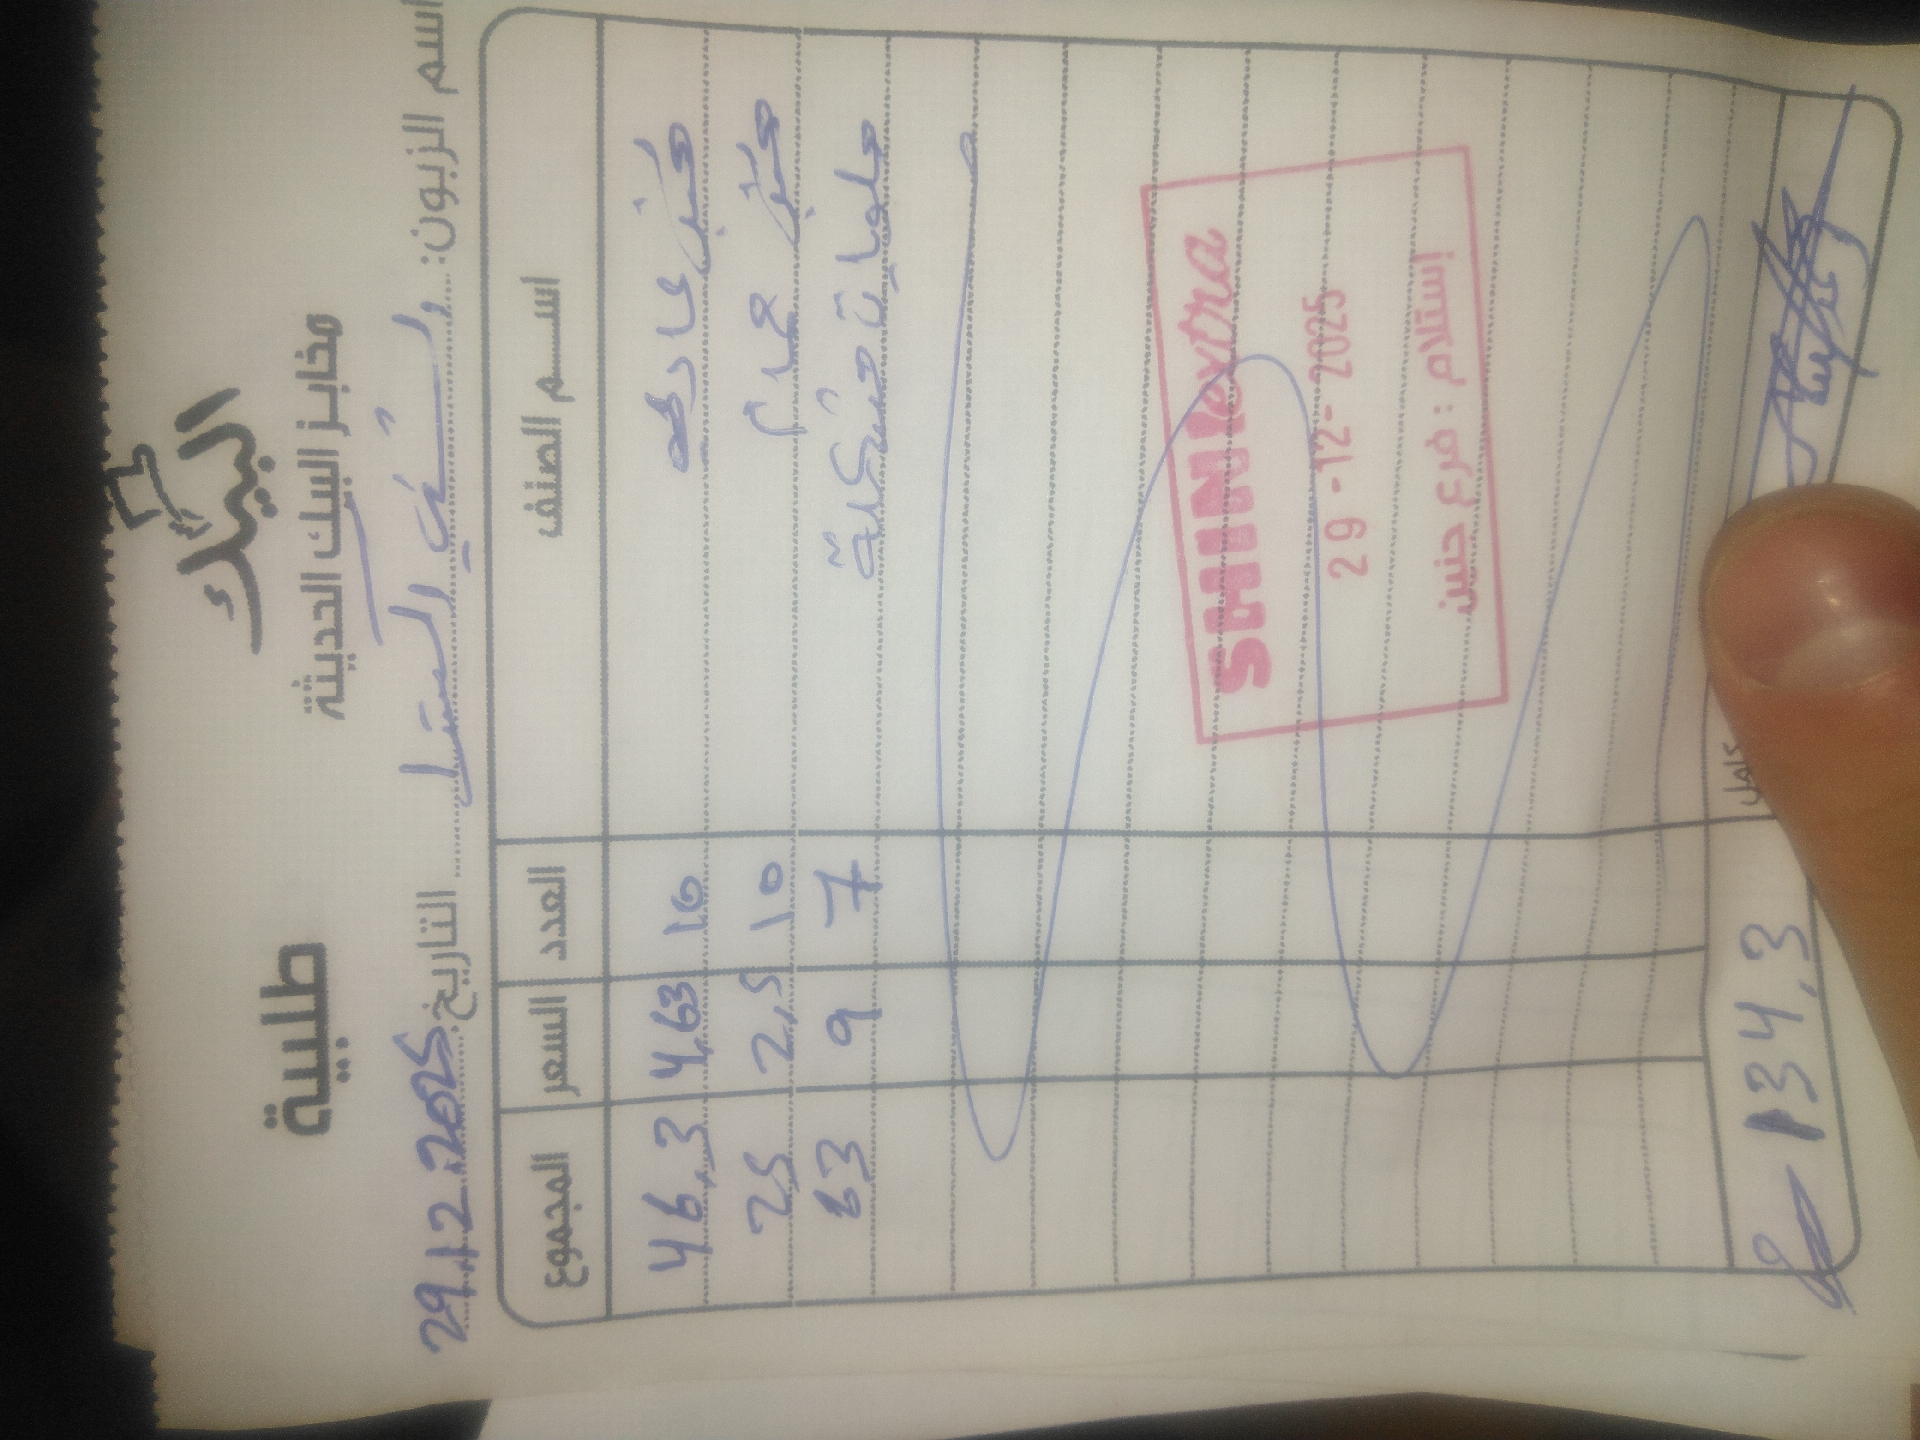 البيك
مخابز البيك الحديثة
طلبية
اسم الزبون:
التاريخ 29.12.2025
اســم الصنف العدد السعر المجموع
خبز عادي 10 4,63 46,3
خبز 10 2,5 25
حلويات مشكلة 7 9 63
SHINIextra
29-12-2025
إستلام : فرع جنين
134,3